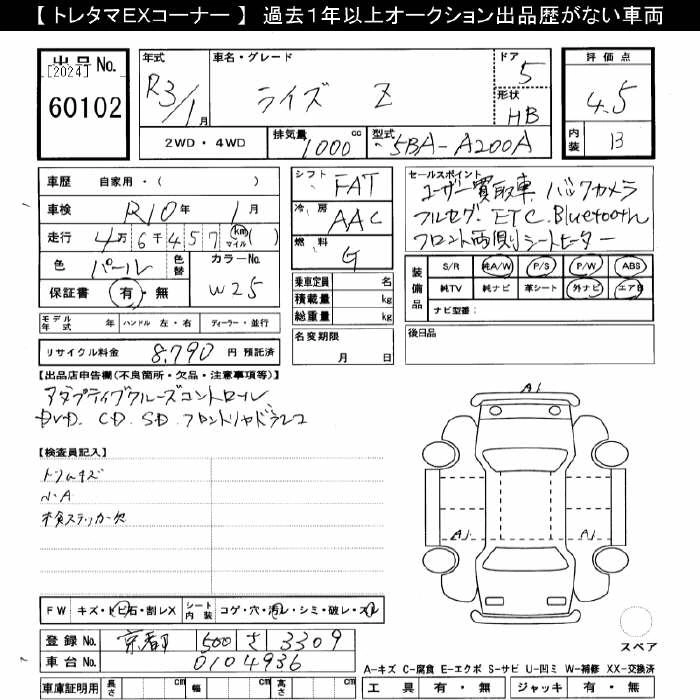 【 トレタマEXコーナー 】 過去1年以上オークション出品歴がない車両
出品 No.
[2024]
60102
年式
R3/1月
車名・グレード
ライズ Z
ドア
5
形状
HB
評価点
4.5
内装
B
2WD・4WD
排気量
1000 cc
型式
5BA-A200A
車歴 自家用・( )
車検 R10年 1月
走行 4万6千457 km マイル ( )
色 パール 色替
カラーNo. W25
保証書 有・無
モデル年式 年 ハンドル 左・右 ディーラー・並行
リサイクル料金 8,790 円 預託済
シフト FAT
冷房 AAC
燃料 G
乗車定員 名
積載量 kg
総重量 kg
名変期限
月 日
セールスポイント
ユーザー買取車 バックカメラ
フルセグ. ETC. Bluetooth
フロント両側シートヒーター
装備品
S/R 純A/W P/S P/W ABS
純TV 純ナビ 革シート 外ナビ エアB
ナビ型番:
後日品
【出品店申告欄(不良箇所・欠品・注意事項等)】
アダプティブクルーズコントロール
DVD. CD. SD. フロントリヤドラレコ
【検査員記入】
トリムキズ
N・A
検査ステッカー欠
FW キズ・トビ石・割レX
シート内装 コゲ・穴・汚レ・シミ・破レ・スレ
登録No. 京都 500 さ 3309
車台No. 0104936
車庫証明用 長さ cm 幅 cm 高さ cm
A1
A1
A1
スペア
A-キズ C-腐食 E-エクボ S-サビ U-凹ミ W-補修 XX-交換済
工具 有・無 ジャッキ 有・無